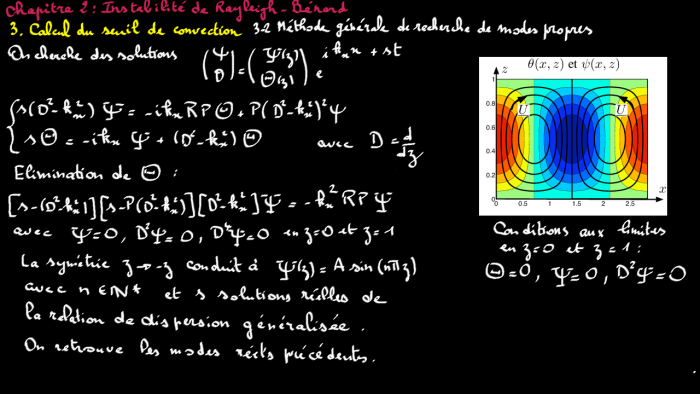 Chapitre 2 : Instabilité de Rayleigh - Bénard
3. Calcul du seuil de convection 3.2 Méthode générale de recherche de modes propres
On cherche des solutions (Ψ Θ) = (Ψ(z) Θ(z)) e^{i k_x x + st}
{ s(D²-k_x²) Ψ = -i k_x R P Θ + P(D²-k_x²)² Ψ
s Θ = -i k_x Ψ + (D²-k_x²) Θ avec D = d/dz
Elimination de Θ :
[s-(D²-k_x²)][s-P(D²-k_x²)][D²-k_x²]Ψ = -k_x² R P Ψ
avec Ψ=0, D²Ψ=0, D⁴Ψ=0 en z=0 et z=1
La symétrie z → -z conduit à Ψ(z) = A sin(nπz)
avec n ∈ N* et s solutions réelles de
la relation de dispersion généralisée.
On retrouve les modes réels précédents.
θ(x, z) et ψ(x, z)
z
1
0.8
0.6
0.4
0.2
0
U U
0 0.5 1 1.5 2 2.5
x
Conditions aux limites
en z=0 et z=1 :
Θ=0, Ψ=0, D²Ψ=0